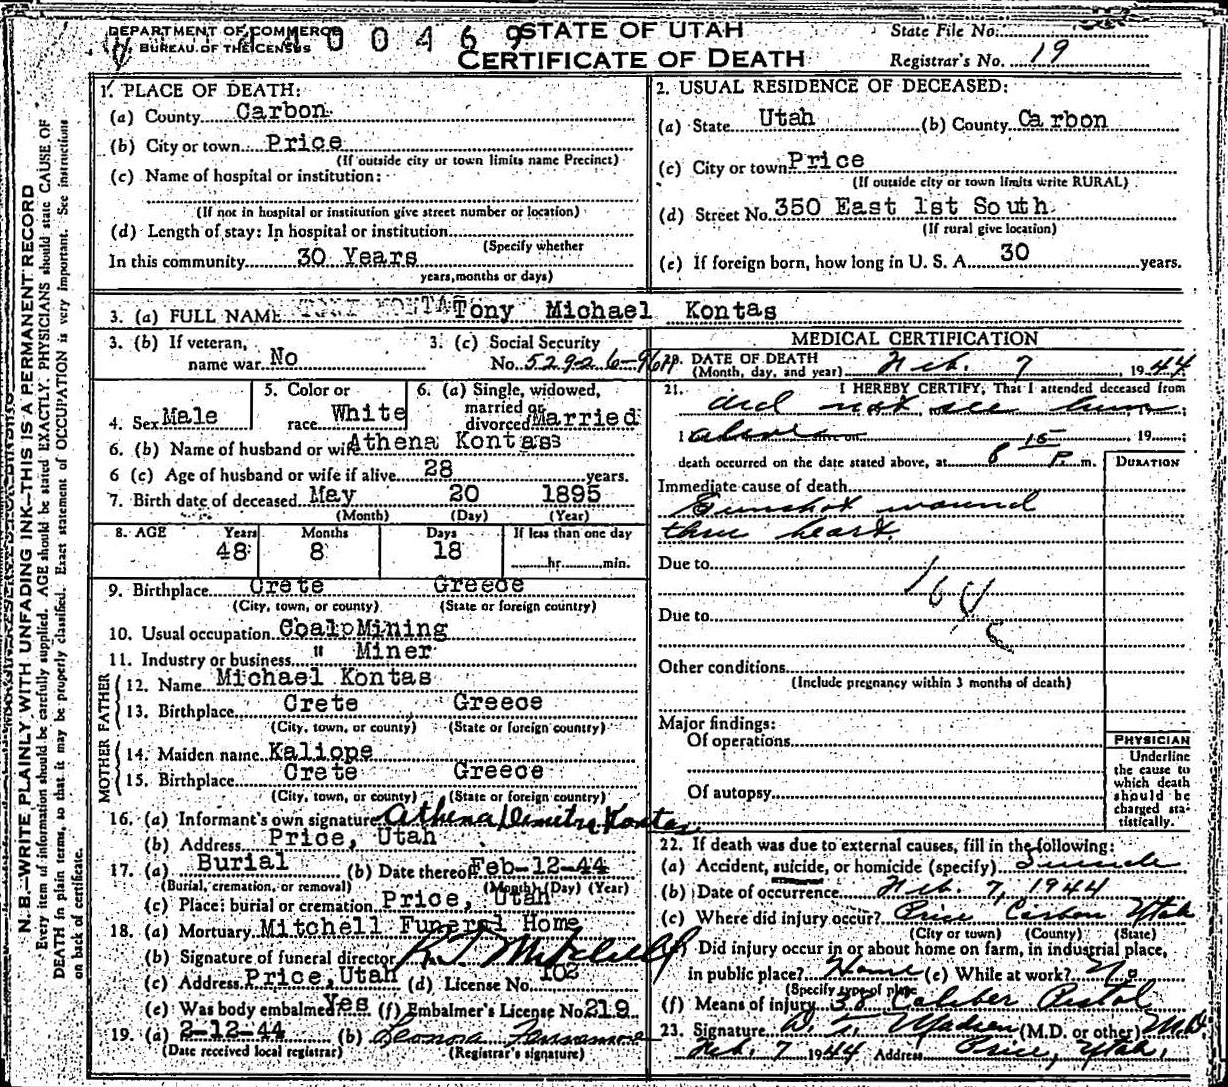 DEPARTMENT OF COMMERCE
BUREAU OF THE CENSUS
0 0 4 6 9
STATE OF UTAH
CERTIFICATE OF DEATH
State File No.
Registrar's No. 19
N. B.—WRITE PLAINLY WITH UNFADING INK—THIS IS A PERMANENT RECORD
Every item of information should be carefully supplied. AGE should be stated EXACTLY. PHYSICIANS should state CAUSE OF
DEATH in plain terms, so that it may be properly classified. Exact statement of OCCUPATION is very important. See instructions
on back of certificate.
1. PLACE OF DEATH:
(a) County Carbon
(b) City or town Price
(If outside city or town limits name Precinct)
(c) Name of hospital or institution:
(If not in hospital or institution give street number or location)
(d) Length of stay: In hospital or institution
(Specify whether
In this community 30 Years
years, months or days)
2. USUAL RESIDENCE OF DECEASED:
(a) State Utah (b) County Carbon
(c) City or town Price
(If outside city or town limits write RURAL)
(d) Street No. 350 East 1st South
(If rural give location)
(e) If foreign born, how long in U. S. A. 30 years.
3. (a) FULL NAME Tony Michael Kontas
3. (b) If veteran,
name war No
3. (c) Social Security
No.
4. Sex Male
5. Color or
race White
6. (a) Single, widowed,
married or
divorced Married
6. (b) Name of husband or wife Athena Kontas
6 (c) Age of husband or wife if alive 28 years.
7. Birth date of deceased May 20 1895
(Month) (Day) (Year)
8. AGE Years Months Days If less than one day
48 8 18 hr. min.
9. Birthplace Crete Greece
(City, town, or county) (State or foreign country)
10. Usual occupation Coal Mining
11. Industry or business " Miner
FATHER
12. Name Michael Kontas
13. Birthplace Crete Greece
(City, town, or county) (State or foreign country)
MOTHER
14. Maiden name Kaliope
15. Birthplace Crete Greece
(City, town, or county) (State or foreign country)
16. (a) Informant's own signature Athena Demetra Kontas
(b) Address Price, Utah
17. (a) Burial (b) Date thereof Feb-12-44
(Burial, cremation, or removal) (Month) (Day) (Year)
(c) Place: burial or cremation Price, Utah
18. (a) Mortuary Mitchell Funeral Home
(b) Signature of funeral director Mitchell
(c) Address Price, Utah (d) License No. 102
(e) Was body embalmed Yes (f) Embalmer's License No 219
19. (a) 2-12-44 (b)
(Date received local registrar) (Registrar's signature)
MEDICAL CERTIFICATION
20. DATE OF DEATH
(Month, day, and year) Feb. 7 1944
21. I HEREBY CERTIFY, That I attended deceased from
did not see him
alive 19
death occurred on the date stated above, at 8 15 P. m.
DURATION
Immediate cause of death
Gunshot wound
thru heart.
Due to
Due to
Other conditions
(Include pregnancy within 3 months of death)
Major findings:
Of operations
Of autopsy
PHYSICIAN
Underline
the cause to
which death
should be
charged sta-
tistically.
22. If death was due to external causes, fill in the following:
(a) Accident, suicide, or homicide (specify) Suicide
(b) Date of occurrence Feb. 7, 1944
(c) Where did injury occur? Price Carbon Utah
(City or town) (County) (State)
Did injury occur in or about home on farm, in industrial place,
in public place? Home (e) While at work? No
(Specify type of place
(f) Means of injury 38 Caliber Pistol
23. Signature Madsen (M.D. or other) M.D.
Feb. 7 1944 Address Price, Utah.